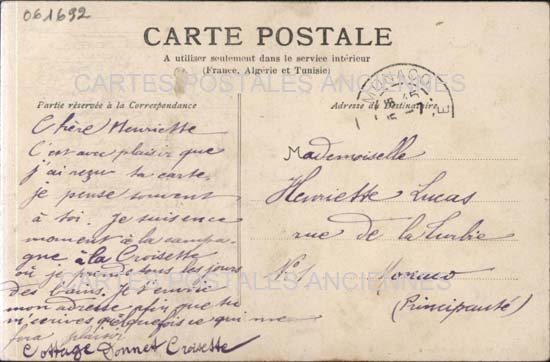 061692
CARTE POSTALE
A utiliser seulement dans le service intérieur
(France, Algérie et Tunisie)
CARTES POSTALES ANCIENNES
MONACO
Partie réservée à la Correspondance
Adresse du Destinataire
Chère Henriette
C'est avec plaisir que
j'ai reçu ta carte.
je pense souvent
à toi. Je suis en ce
moment à la campa-
gne à la Croisette
où je prends tous les jours
des bains. Je t'envoie
mon adresse afin que tu
m'écrives quelquefois ce qui me
fera plaisir
Cottage Donnet Croisette
Mademoiselle
Henriette Lucas
rue de la Turbie
Monaco
(Principauté)
CARTES POSTALES ANCIENNES